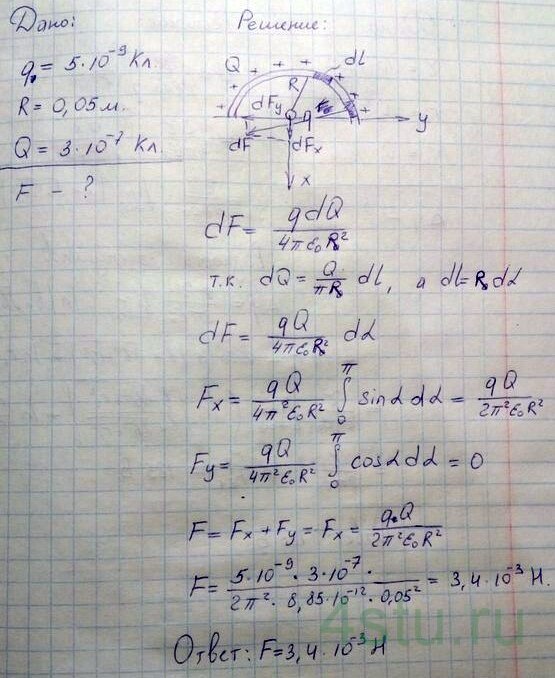 Дано: Решение:
q₀ = 5·10⁻⁹ Кл.
R = 0,05 м.
Q = 3·10⁻⁷ Кл.
F - ?
Q + + + + + + + R dl
dFy q y
dF dFx
x
dF = qdQ / 4πε₀R²
т.к. dQ = Q/πR dl, а dl = R dα
dF = qQ / 4πε₀R² dα
Fx = qQ / 4π²ε₀R² ∫₀^π sinα dα = qQ / 2π²ε₀R²
Fy = qQ / 4π²ε₀R² ∫₀^π cosα dα = 0
F = Fx + Fy = Fx = q·Q / 2π²ε₀R²
F = 5·10⁻⁹ · 3·10⁻⁷ · / 2π² · 8,85·10⁻¹² · 0,05² = 3,4·10⁻³ Н.
Ответ: F = 3,4·10⁻³ Н
4stu.ru